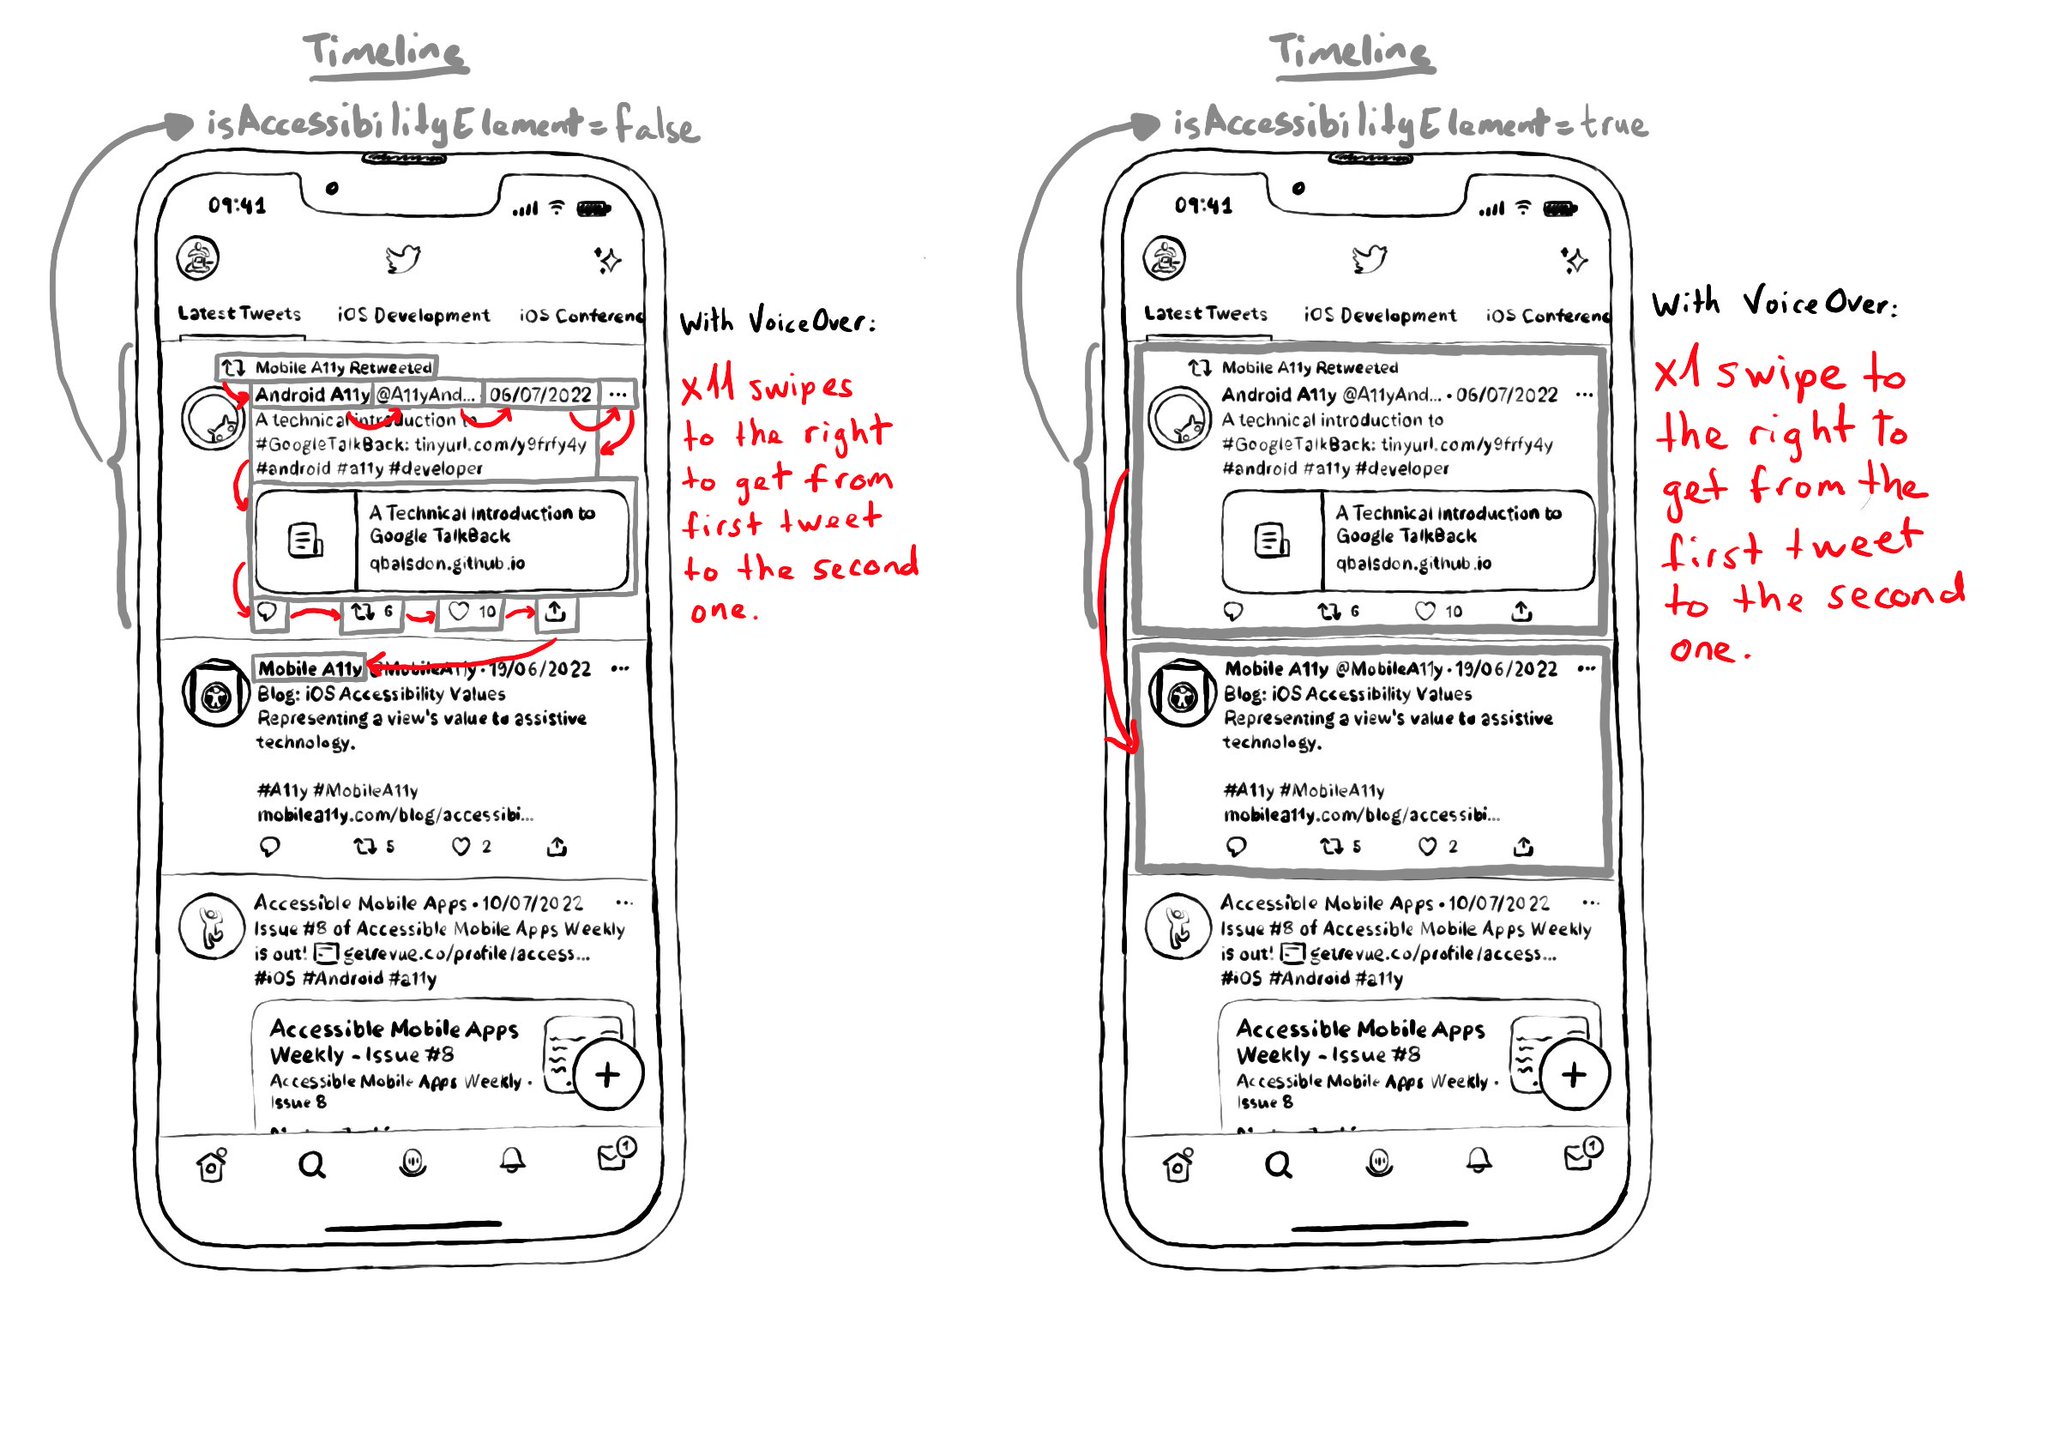 Timeline
isAccessibilityElement=false
09:41
Latest Tweets iOS Development iOS Conferenc
Mobile A11y Retweeted
Android A11y @A11yAnd... 06/07/2022 ...
A technical introduction to
#GoogleTalkBack: tinyurl.com/y9frfy4y
#android #a11y #developer
A Technical introduction to
Google TalkBack
qbalsdon.github.io
6 10
Mobile A11y @MobileA11y · 19/06/2022 ...
Blog: iOS Accessibility Values
Representing a view's value to assistive
technology.
#A11y #MobileA11y
mobilea11y.com/blog/accessibi...
5 2
Accessible Mobile Apps · 10/07/2022 ...
Issue #8 of Accessible Mobile Apps Weekly
is out! getrevue.co/profile/access...
#iOS #Android #a11y
Accessible Mobile Apps
Weekly - Issue #8
Accessible Mobile Apps Weekly ·
Issue 8
1
With VoiceOver:
x11 swipes
to the right
to get from
first tweet
to the second
one.
Timeline
isAccessibilityElement=true
09:41
Latest Tweets iOS Development iOS Conferenc
Mobile A11y Retweeted
Android A11y @A11yAnd... · 06/07/2022 ...
A technical introduction to
#GoogleTalkBack: tinyurl.com/y9frfy4y
#android #a11y #developer
A Technical introduction to
Google TalkBack
qbalsdon.github.io
6 10
Mobile A11y @MobileA11y · 19/06/2022 ...
Blog: iOS Accessibility Values
Representing a view's value to assistive
technology.
#A11y #MobileA11y
mobilea11y.com/blog/accessibi...
5 2
Accessible Mobile Apps · 10/07/2022 ...
Issue #8 of Accessible Mobile Apps Weekly
is out! getrevue.co/profile/access...
#iOS #Android #a11y
Accessible Mobile Apps
Weekly - Issue #8
Accessible Mobile Apps Weekly ·
Issue 8
1
With VoiceOver:
x1 swipe to
the right to
get from the
first tweet
to the second
one.